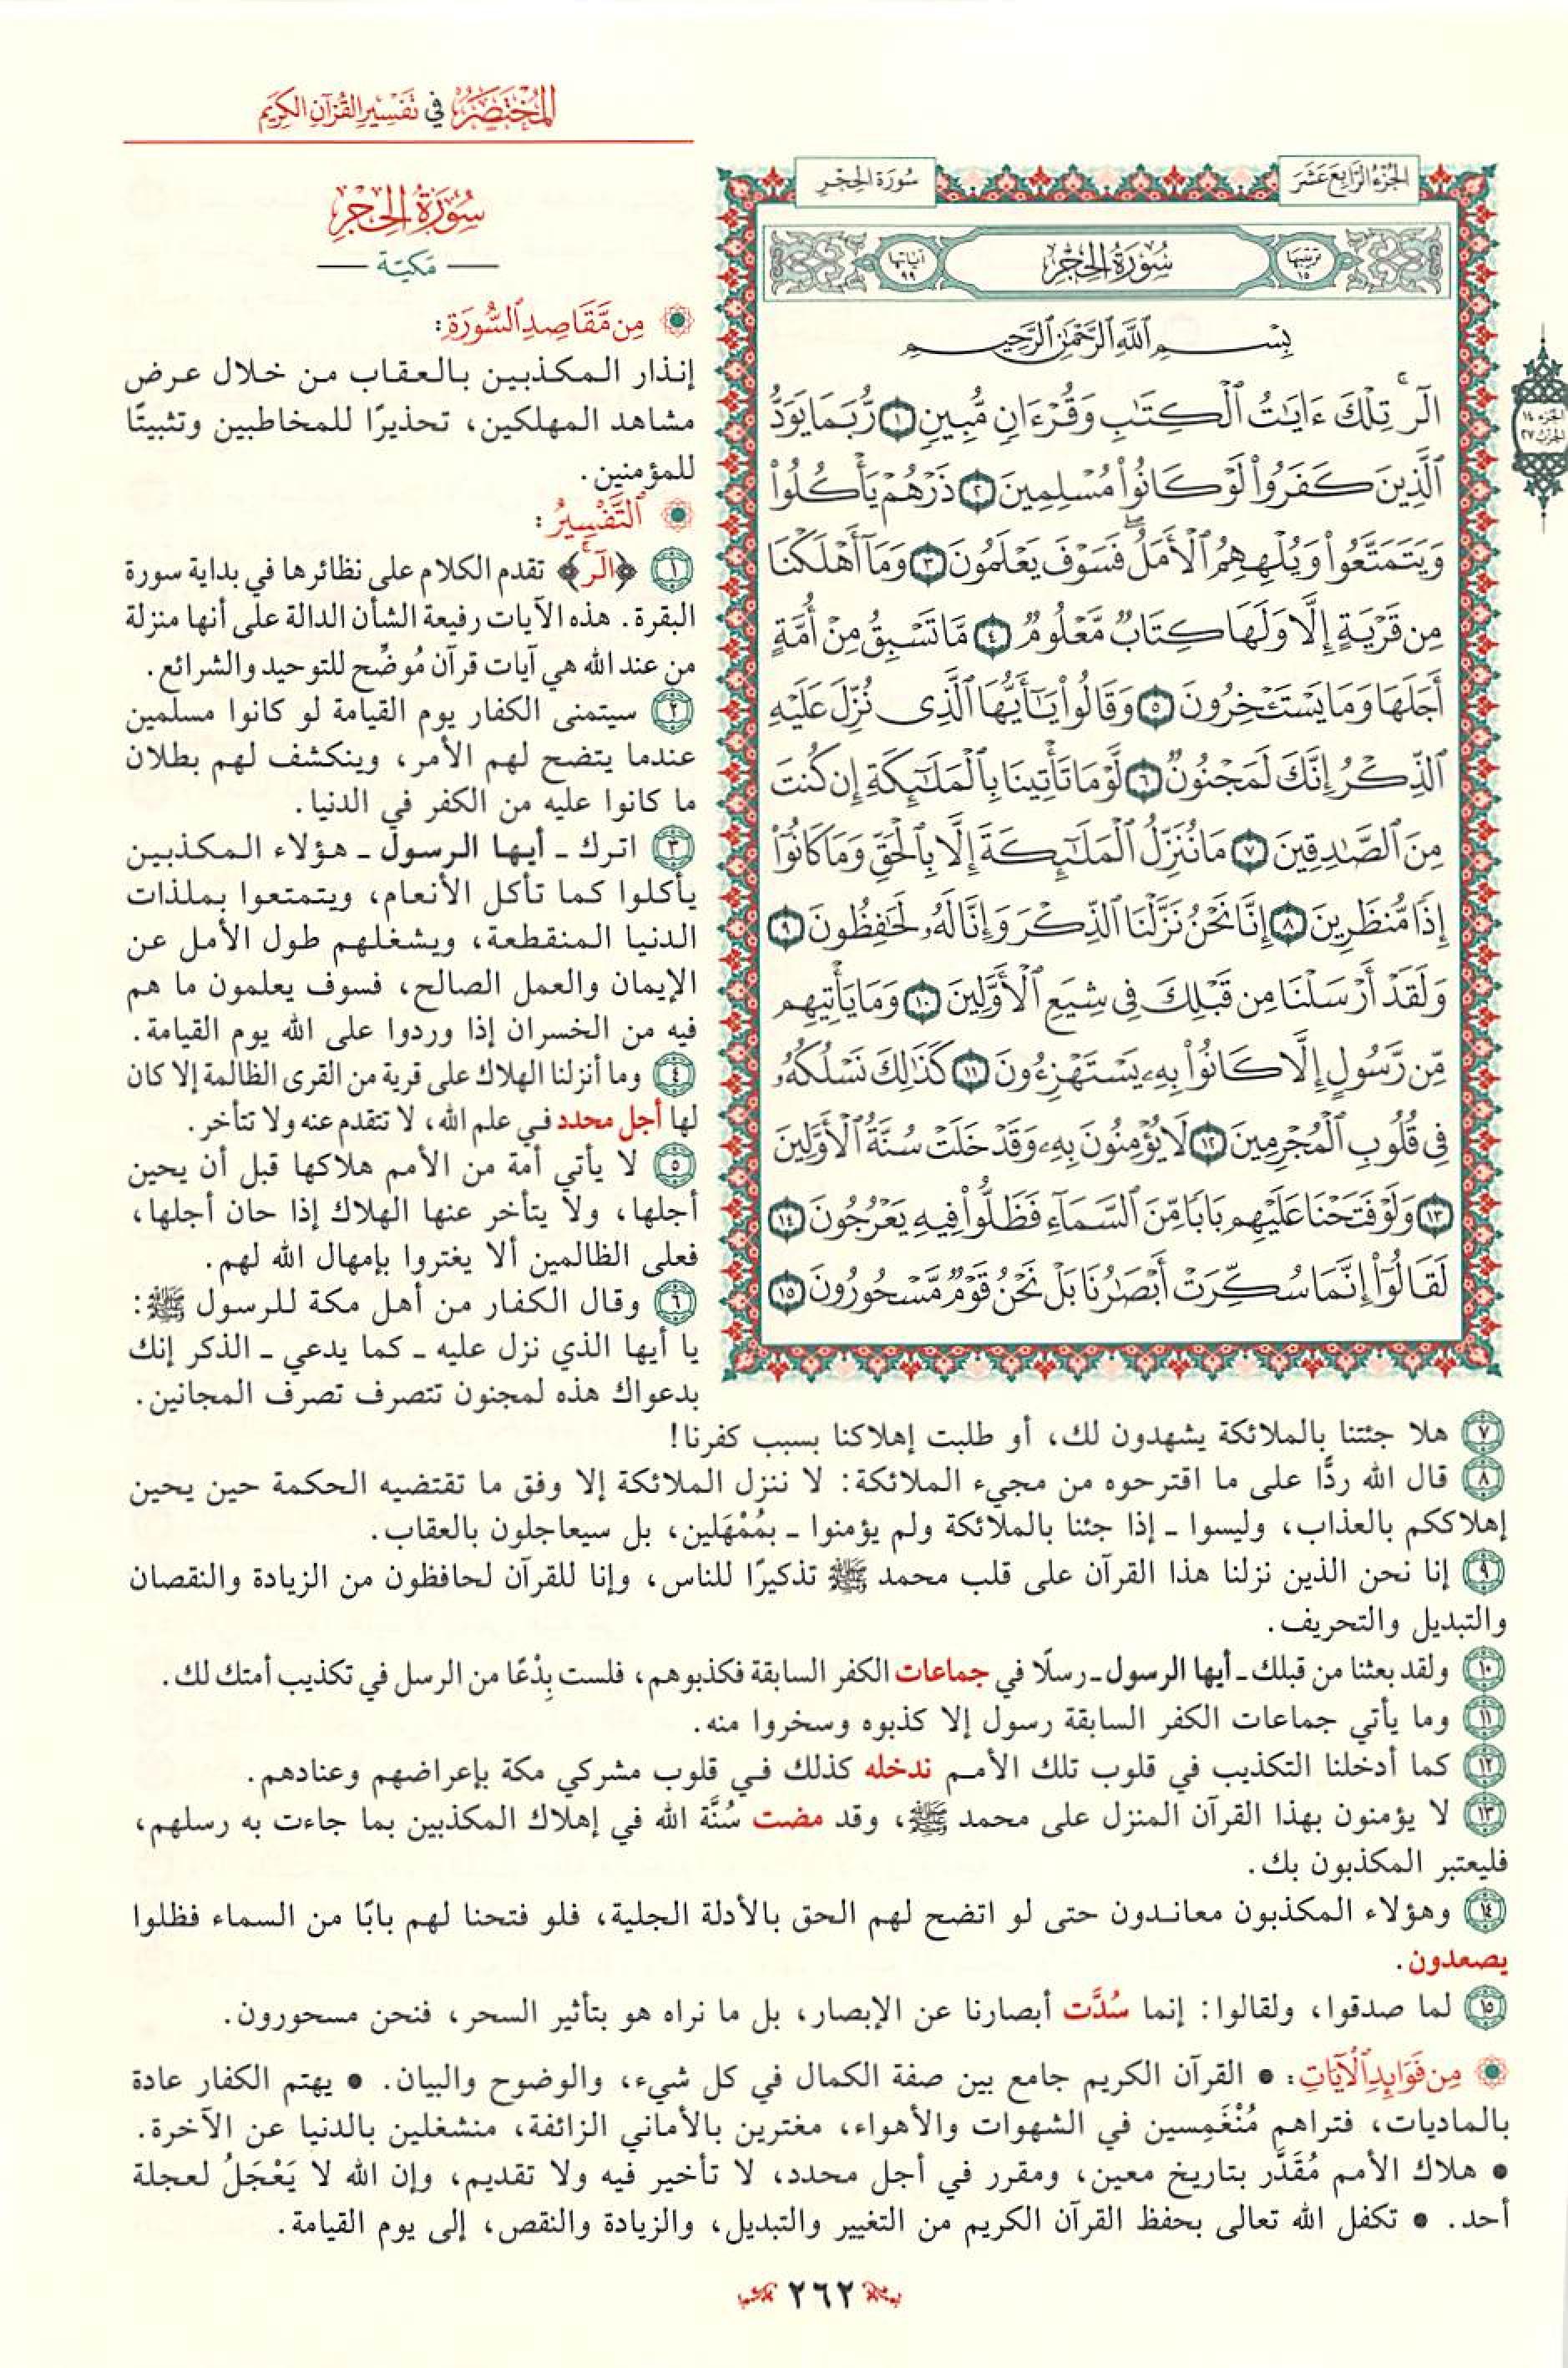 المختصر في تفسير القرآن الكريم
الجزء الرابع عشر
سورة الحجر
ترتيبها ١٥
سُورَةُ الحِجْرِ
آياتها ٩٩
بِسْمِ ٱللَّهِ ٱلرَّحْمَٰنِ ٱلرَّحِيمِ
الٓرۚ تِلْكَ ءَايَٰتُ ٱلْكِتَٰبِ وَقُرْءَانٖ مُّبِينٖ ١ رُّبَمَا يَوَدُّ
ٱلَّذِينَ كَفَرُواْ لَوْ كَانُواْ مُسْلِمِينَ ٢ ذَرْهُمْ يَأْكُلُواْ
وَيَتَمَتَّعُواْ وَيُلْهِهِمُ ٱلْأَمَلُۖ فَسَوْفَ يَعْلَمُونَ ٣ وَمَآ أَهْلَكْنَا
مِن قَرْيَةٍ إِلَّا وَلَهَا كِتَابٞ مَّعْلُومٞ ٤ مَّا تَسْبِقُ مِنْ أُمَّةٍ
أَجَلَهَا وَمَا يَسْتَـْٔخِرُونَ ٥ وَقَالُواْ يَٰٓأَيُّهَا ٱلَّذِي نُزِّلَ عَلَيْهِ
ٱلذِّكْرُ إِنَّكَ لَمَجْنُونٞ ٦ لَّوْ مَا تَأْتِينَا بِٱلْمَلَٰٓئِكَةِ إِن كُنتَ
مِنَ ٱلصَّٰدِقِينَ ٧ مَا نُنَزِّلُ ٱلْمَلَٰٓئِكَةَ إِلَّا بِٱلْحَقِّ وَمَا كَانُوٓاْ
إِذٗا مُّنظَرِينَ ٨ إِنَّا نَحْنُ نَزَّلْنَا ٱلذِّكْرَ وَإِنَّا لَهُۥ لَحَٰفِظُونَ ٩
وَلَقَدْ أَرْسَلْنَا مِن قَبْلِكَ فِي شِيَعِ ٱلْأَوَّلِينَ ١٠ وَمَا يَأْتِيهِم
مِّن رَّسُولٍ إِلَّا كَانُواْ بِهِۦ يَسْتَهْزِءُونَ ١١ كَذَٰلِكَ نَسْلُكُهُۥ
فِي قُلُوبِ ٱلْمُجْرِمِينَ ١٢ لَا يُؤْمِنُونَ بِهِۦ وَقَدْ خَلَتْ سُنَّةُ ٱلْأَوَّلِينَ
١٣ وَلَوْ فَتَحْنَا عَلَيْهِم بَابٗا مِّنَ ٱلسَّمَآءِ فَظَلُّواْ فِيهِ يَعْرُجُونَ ١٤
لَقَالُوٓاْ إِنَّمَا سُكِّرَتْ أَبْصَٰرُنَا بَلْ نَحْنُ قَوْمٞ مَّسْحُورُونَ ١٥
الجزء ١٤
الحزب ٢٧
سُورَةُ الحِجْرِ
مكيّة
مِن مَّقَاصِدِ ٱلسُّورَةِ:
إنذار المكذبين بالعقاب من خلال عرض
مشاهد المهلكين، تحذيرًا للمخاطبين وتثبيتًا
للمؤمنين.
ٱلتَّفْسِيرُ:
١ ﴿الٓرۚ﴾ تقدم الكلام على نظائرها في بداية سورة
البقرة. هذه الآيات رفيعة الشأن الدالة على أنها منزلة
من عند الله هي آيات قرآن مُوضِّح للتوحيد والشرائع.
٢ سيتمنى الكفار يوم القيامة لو كانوا مسلمين
عندما يتضح لهم الأمر، وينكشف لهم بطلان
ما كانوا عليه من الكفر في الدنيا.
٣ اترك ـ أيها الرسول ـ هؤلاء المكذبين
يأكلوا كما تأكل الأنعام، ويتمتعوا بملذات
الدنيا المنقطعة، ويشغلهم طول الأمل عن
الإيمان والعمل الصالح، فسوف يعلمون ما هم
فيه من الخسران إذا وردوا على الله يوم القيامة.
٤ وما أنزلنا الهلاك على قرية من القرى الظالمة إلا كان
لها أجل محدد في علم الله، لا تتقدم عنه ولا تتأخر.
٥ لا يأتي أمة من الأمم هلاكها قبل أن يحين
أجلها، ولا يتأخر عنها الهلاك إذا حان أجلها،
فعلى الظالمين ألا يغتروا بإمهال الله لهم.
٦ وقال الكفار من أهل مكة للرسول ﷺ:
يا أيها الذي نزل عليه ـ كما يدعي ـ الذكر إنك
بدعواك هذه لمجنون تتصرف تصرف المجانين.
٧ هلا جئتنا بالملائكة يشهدون لك، أو طلبت إهلاكنا بسبب كفرنا!
٨ قال الله ردًّا على ما اقترحوه من مجيء الملائكة: لا ننزل الملائكة إلا وفق ما تقتضيه الحكمة حين يحين
إهلاككم بالعذاب، وليسوا ـ إذا جئنا بالملائكة ولم يؤمنوا ـ بمُمْهَلين، بل سيعاجلون بالعقاب.
٩ إنا نحن الذين نزلنا هذا القرآن على قلب محمد ﷺ تذكيرًا للناس، وإنا للقرآن لحافظون من الزيادة والنقصان
والتبديل والتحريف.
١٠ ولقد بعثنا من قبلك ـ أيها الرسول ـ رسلًا في جماعات الكفر السابقة فكذبوهم، فلست بِدْعًا من الرسل في تكذيب أمتك لك.
١١ وما يأتي جماعات الكفر السابقة رسول إلا كذبوه وسخروا منه.
١٢ كما أدخلنا التكذيب في قلوب تلك الأمم ندخله كذلك في قلوب مشركي مكة بإعراضهم وعنادهم.
١٣ لا يؤمنون بهذا القرآن المنزل على محمد ﷺ، وقد مضت سُنَّة الله في إهلاك المكذبين بما جاءت به رسلهم،
فليعتبر المكذبون بك.
١٤ وهؤلاء المكذبون معاندون حتى لو اتضح لهم الحق بالأدلة الجلية، فلو فتحنا لهم بابًا من السماء فظلوا
يصعدون.
١٥ لما صدقوا، ولقالوا: إنما سُدَّت أبصارنا عن الإبصار، بل ما نراه هو بتأثير السحر، فنحن مسحورون.
مِن فَوَائِدِ ٱلْآيَاتِ: • القرآن الكريم جامع بين صفة الكمال في كل شيء، والوضوح والبيان. • يهتم الكفار عادة
بالماديات، فتراهم مُنْغَمِسين في الشهوات والأهواء، مغترين بالأماني الزائفة، منشغلين بالدنيا عن الآخرة.
• هلاك الأمم مُقَدَّر بتاريخ معين، ومقرر في أجل محدد، لا تأخير فيه ولا تقديم، وإن الله لا يَعْجَلُ لعجلة
أحد. • تكفل الله تعالى بحفظ القرآن الكريم من التغيير والتبديل، والزيادة والنقص، إلى يوم القيامة.
٢٦٢